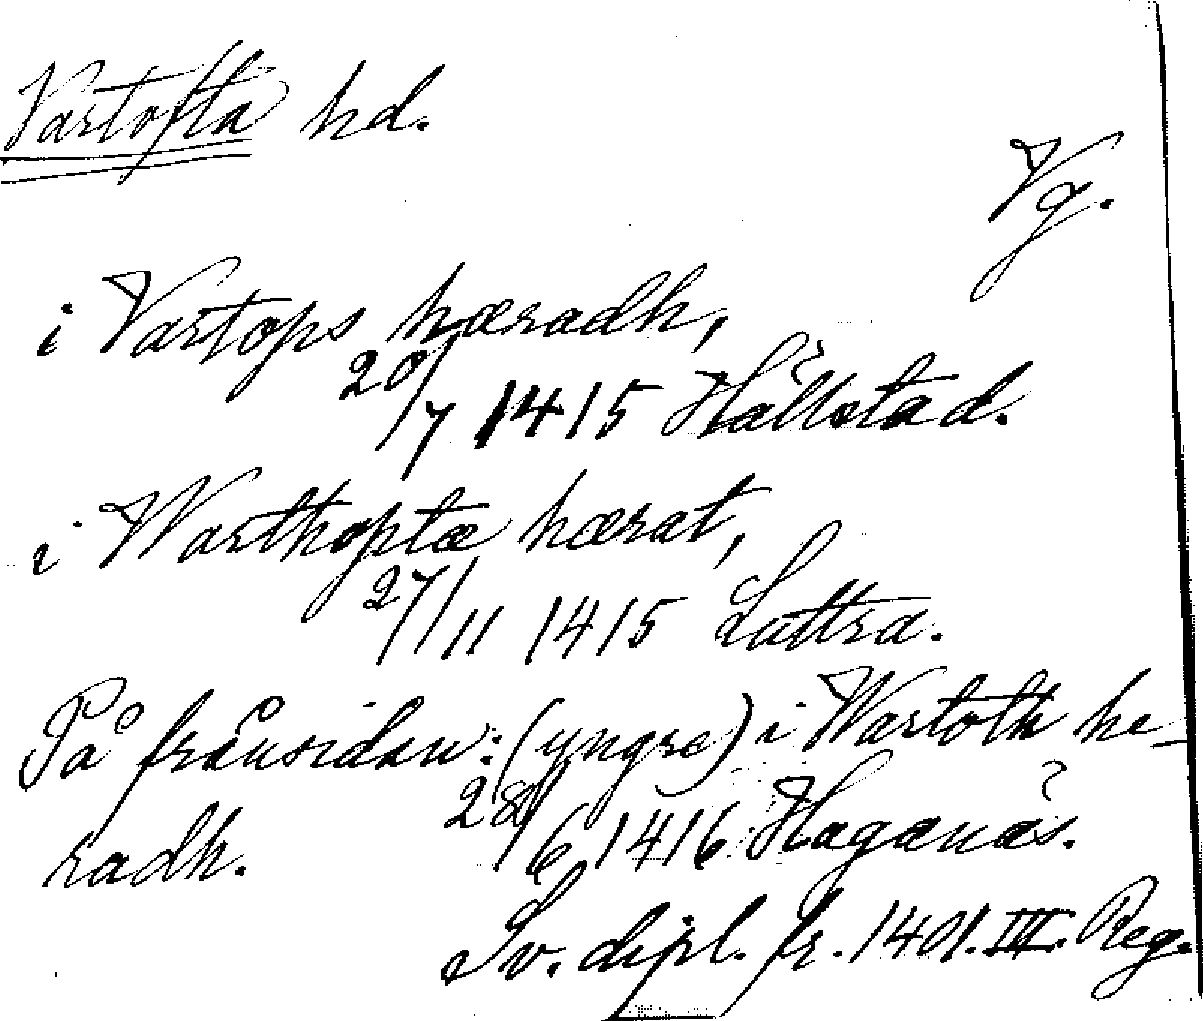 Vartofta hd.
Vg.
i Vartops hæradh,
20/7 1415 Hällstad.
i Warthoptæ hærat,
27/11 1415 Luttra.
På frånsidan: (yngre) i Wartoth he-
radh.
28/6 1416 Haganäs.
Sv. dipl. fr. 1401. III. Reg.